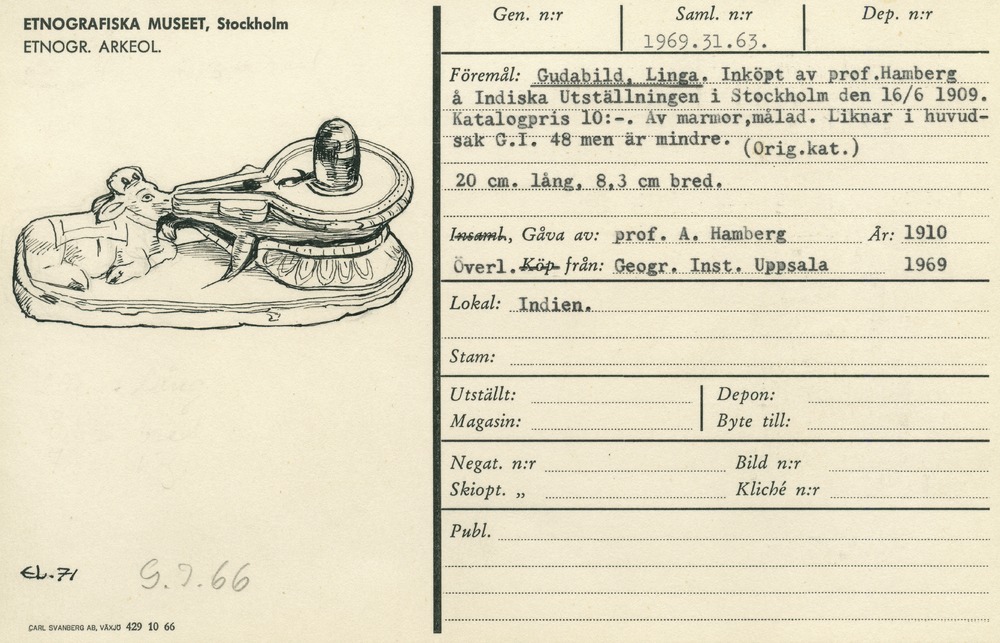 ETNOGRAFISKA MUSEET, Stockholm
ETNOGR. ARKEOL.
Gen. n:r
Saml. n:r
Dep. n:r
1969.31.63.
Föremål: Gudabild, Linga. Inköpt av prof.Hamberg
å Indiska Utställningen i Stockholm den 16/6 1909.
Katalogpris 10:-. Av marmor,målad. Liknar i huvud-
sak G.I. 48 men är mindre. (Orig.kat.)
20 cm. lång, 8,3 cm bred.
Insaml., Gåva av: prof. A. Hamberg År: 1910
Överl. Köp från: Geogr. Inst. Uppsala 1969
Lokal: Indien.
Stam:
Utställt: Depon:
Magasin: Byte till:
Negat. n:r Bild n:r
Skiopt. „ Kliché n:r
Publ.
EL.71
CARL SVANBERG AB, VÄXJÖ 429 10 66